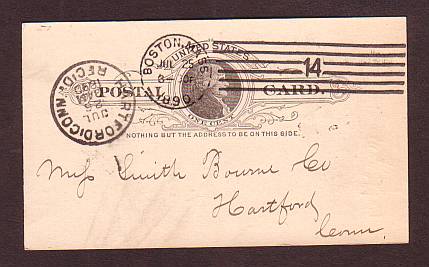 BOSTON, MASS.
JUL 25
1890
14
UNITED STATES
POSTAL CARD.
ONE CENT
NOTHING BUT THE ADDRESS TO BE ON THIS SIDE.
HARTFORD, CONN.
JUL
25
REC'D
Mess Smith Bourne Co
Hartford
Conn